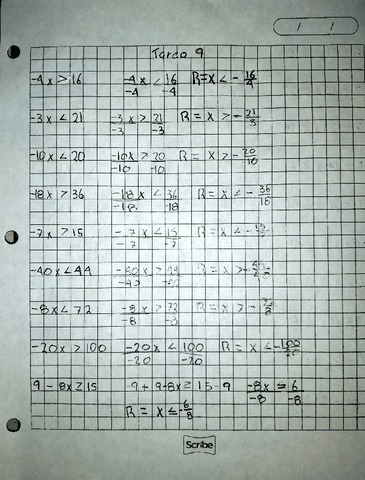 Tarea 9
-4x > 16 -4x/-4 < 16/-4 R= x < -16/4
-3x < 21 -3x/-3 > 21/-3 R= x > -21/3
-10x < 20 -10x/-10 > 20/-10 R= x > -20/10
-18x > 36 -18x/-18 < 36/-18 R= x < -36/18
-7x > 15 -7x/-7 < 15/-7 R= x < -
-40x < 44 -40x/-40 > 44/ R= x > -
-8x < 72 -8x/-8 > 72/-8 R= x > -72/8
-20x > 100 -20x/-20 < 100/-20 R= x < -100/20
9 - 8x ≥ 15 -9 + 9 - 8x ≥ 15 - 9 -8x/-8 = 6/-8
R= x ≤ -6/8
Scribe